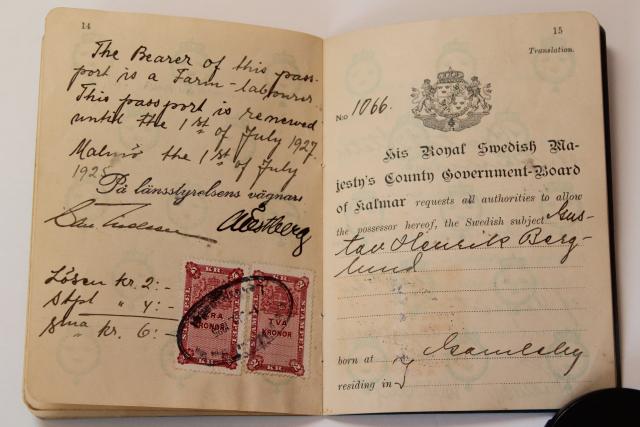 14
The Bearer of this pass-
port is a Farm-labourer
This passport is renewed
until the 1st of July 1927.
Malmö the 1st of July
1925
På länsstyrelsens vägnar:
Lösen kr. 2:-
Stpl " 4:-
Sma kr. 6:-
KR
KR
TVÅ
KRONOR
15
Translation.
No 1066.
His Royal Swedish Ma-
jesty's County Government-Board
of Kalmar requests all authorities to allow
the possessor hereof, the Swedish subject Gus-
tav Henrik Berg-
lund
born at
residing in